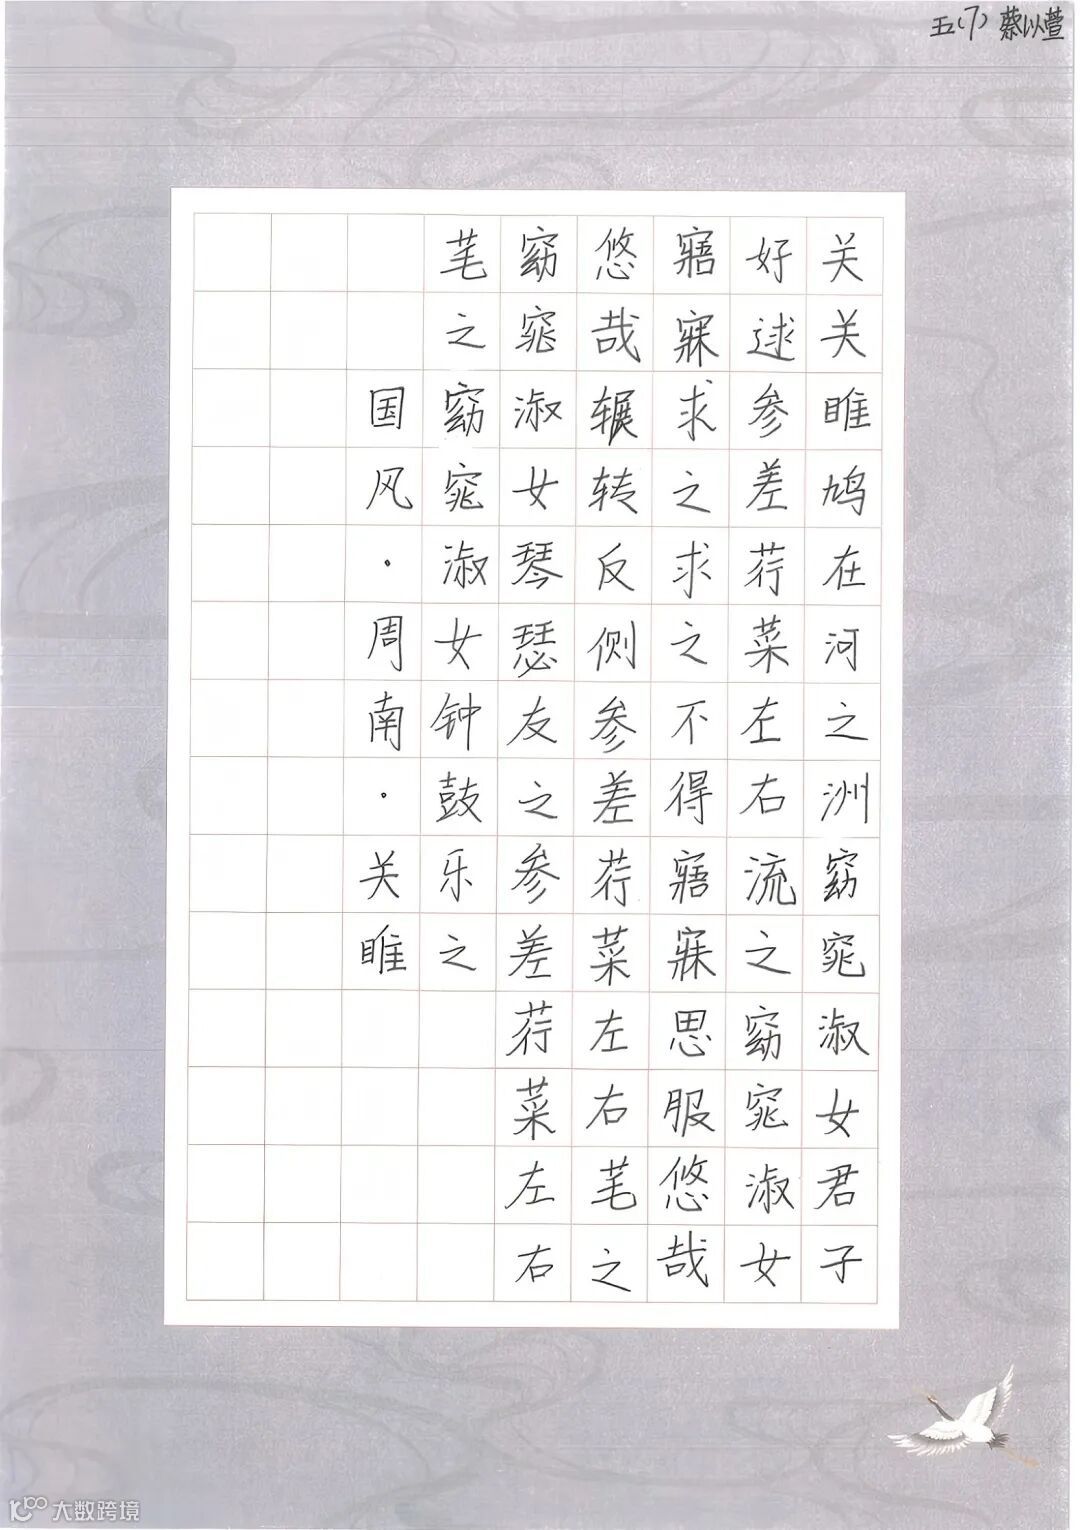 五(7) 蔡以萱
关关睢鸠在河之洲窈窕淑女君子
好逑参差荇菜左右流之窈窕淑女
寤寐求之求之不得寤寐思服悠哉
悠哉辗转反侧参差荇菜左右芼之
窈窕淑女琴瑟友之参差荇菜左右
芼之窈窕淑女钟鼓乐之
国风·周南·关睢
大数跨境